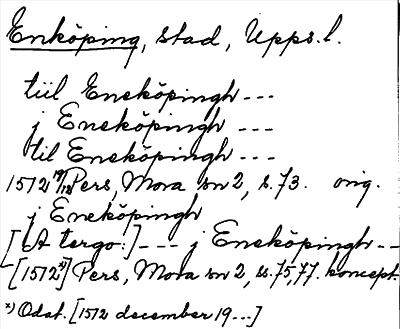 Enköping, stad, Upps.l.
tiil Eneköpingh ---
j Eneköpingh ---
til Eneköpingh ---
1512 19/12 Pers, Mora sn 2, s.73. orig.
j Eneköpingh
[A tergo:] --- j Eneköpingh --
[1512 x)] Pers, Mora sn 2, ss.75,77. koncept.
x) Odat. [1512 december 19...]